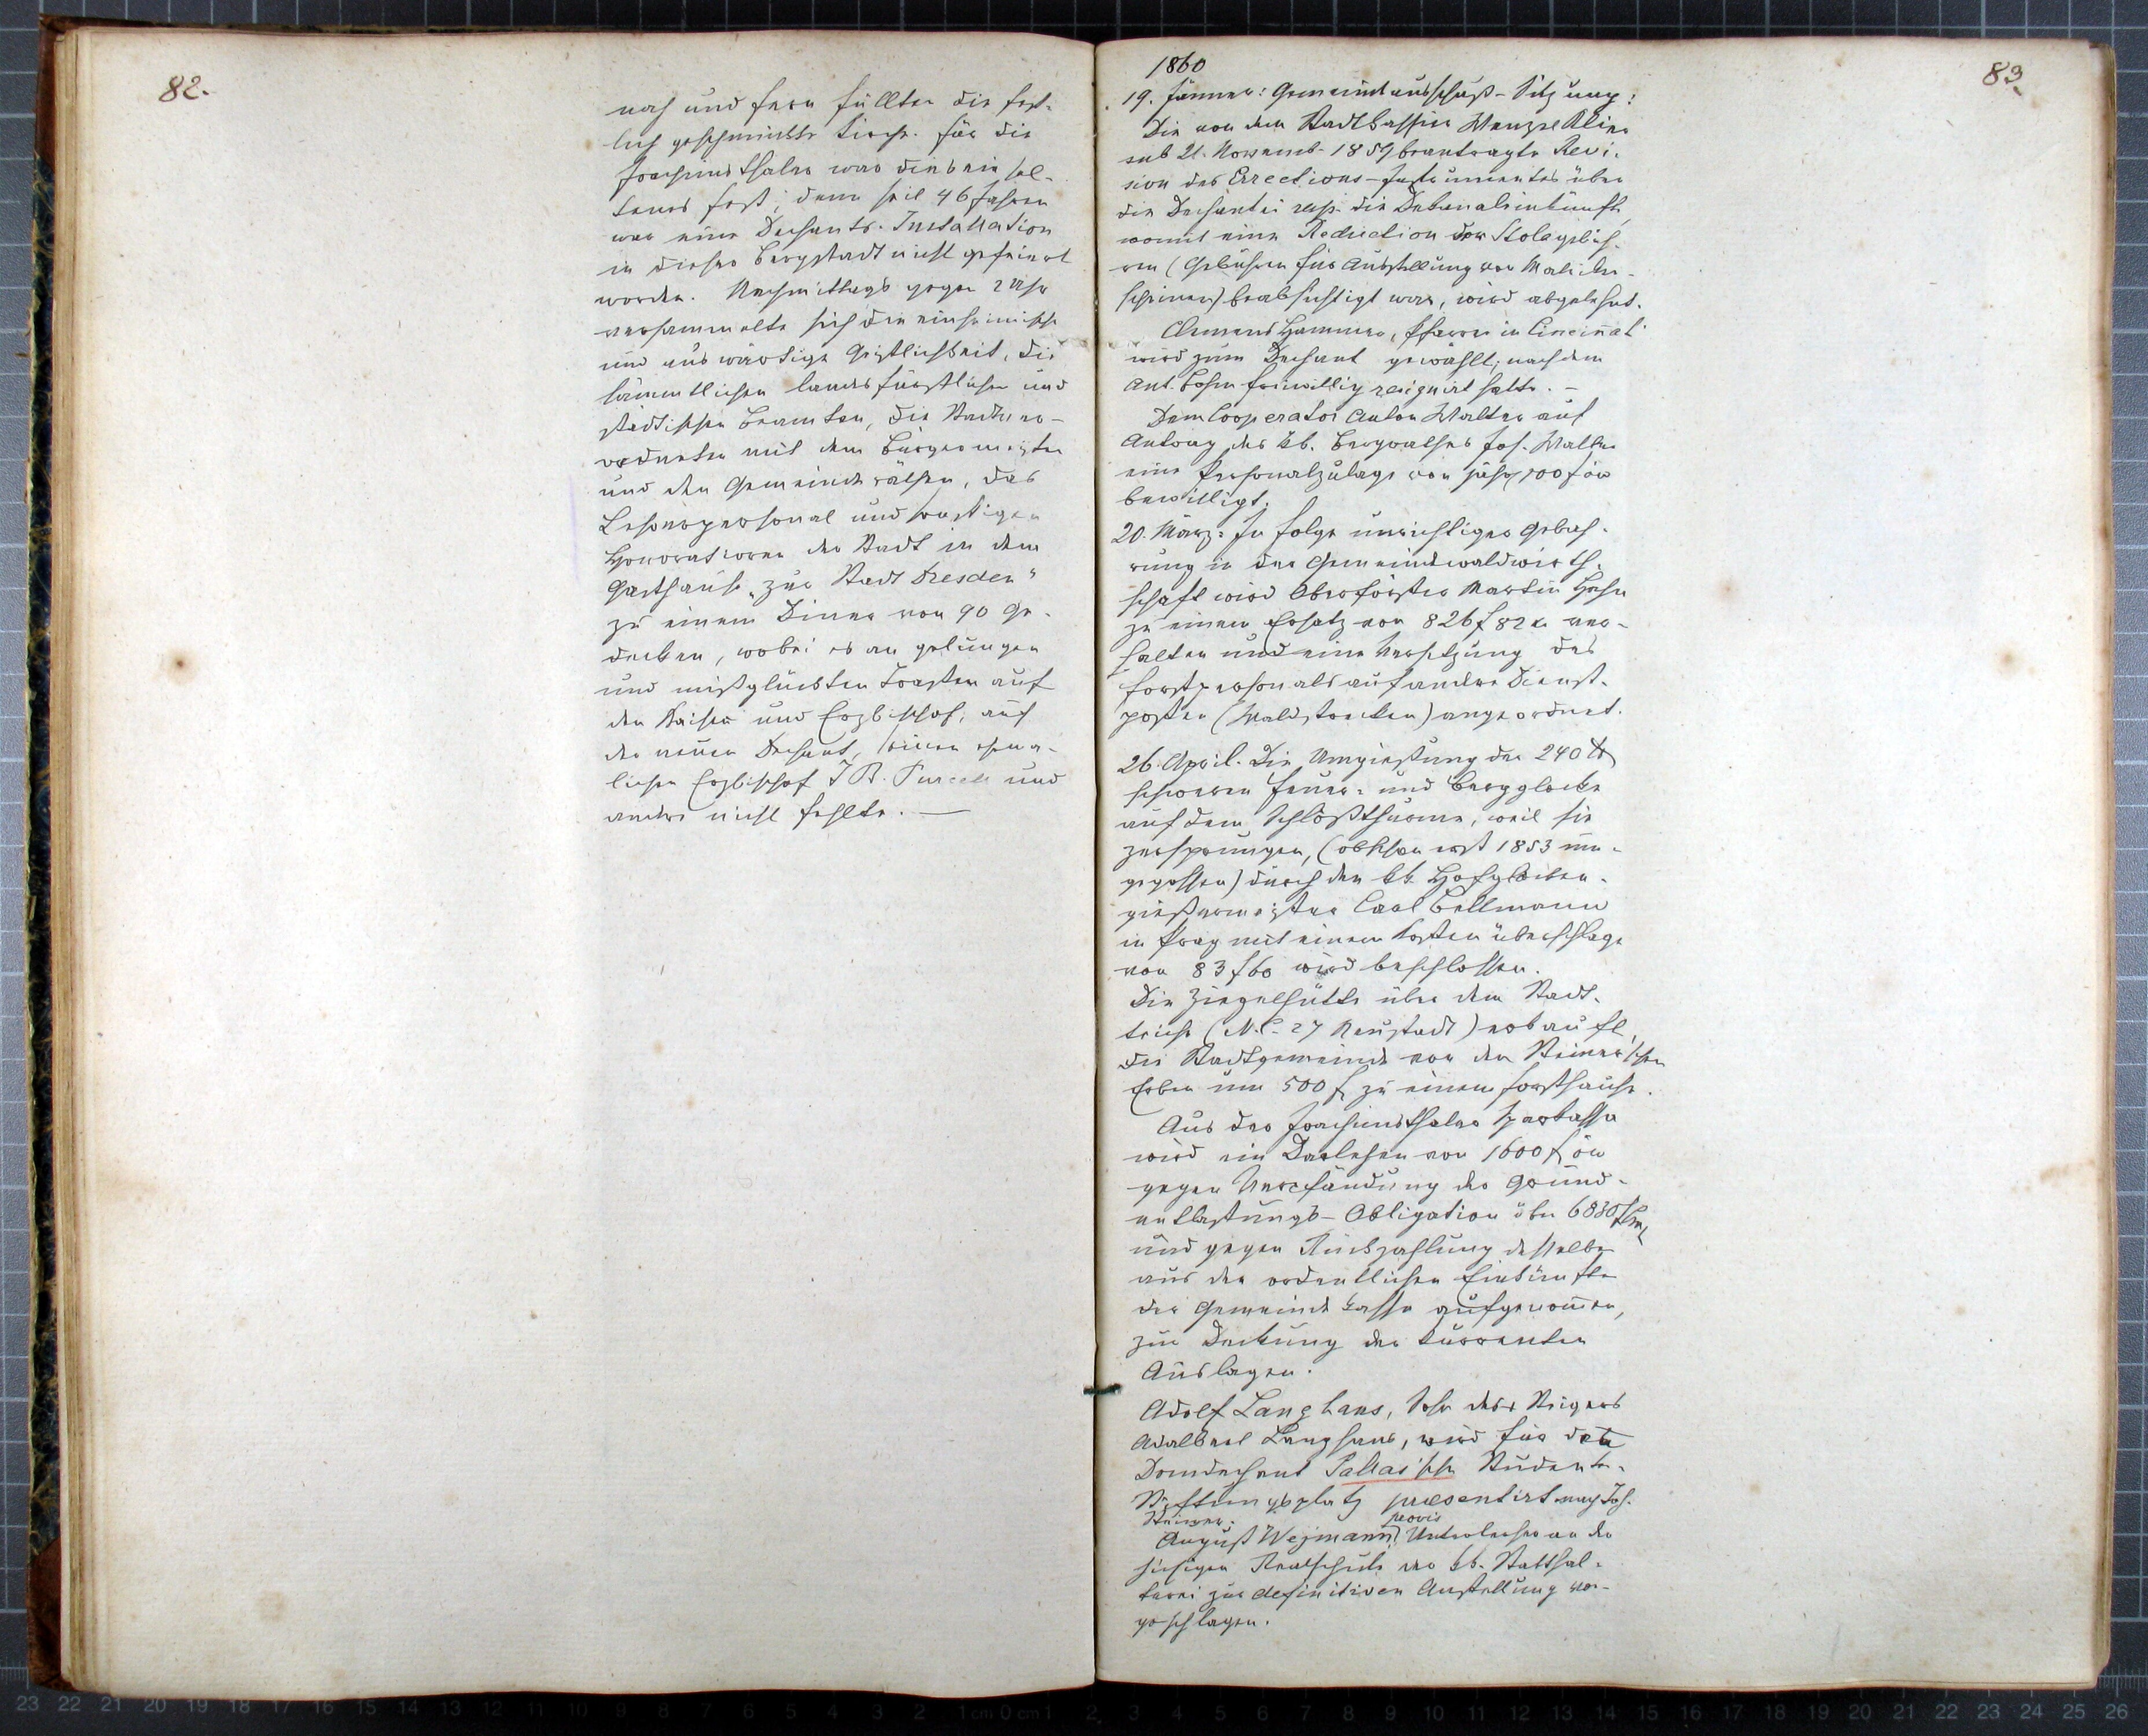 82.
nah und fern füllten die fest-
lich geschmückte Kirche. Für die
Joachimsthaler war dies ein sel-
tenes Fest; denn seit 46 Jahren
war eine Dechants-Installation
in dieser Bergstadt nicht gefeiert
worden. Nachmittags gegen 2 Uhr
versammelte sich die einheimische
und auswärtige Geistlichkeit, die
sämmtlichen landesfürstlichen und
städtischen Beamten, die Stadtver-
ordneten mit dem Bürgermeister
und den Gemeinderäthen, das
Lehrerpersonal und sonstigen
Honoratioren der Stadt in dem
Gasthause „zur Stadt Dresden“
zu einem Diner von 90 Ge-
decken, wobei es an gelungen
und mißglückten Toasten auf
den Kaiser und Erzbischof, auf
den neuen Dechant, seinen ehema-
lichen Erzbischof J B. Purcell und
andere nicht fehlte. —
1860
83
19. Jänner: Gemeindeausschuß-Sitzung:
Die von dem Stadtkassier Wenzel Klier
sub 21. Novemb. 1859 beantragte Revi-
sion des Erections-Instrumentes über
die Dechantei resp. die Dekanaleinkünfte,
womit eine Reduction der Stolagebüh-
ren (Gebühren für Ausstellung von Matriken-
scheinen) beabsichtigt war, wird abgelehnt.
Clemens Hammer, Pfarrer in Cincinnati
wird zum Dechant gewählt, nachdem
Ant. Bohm freiwillig resignirt hatte. —
Dem Cooperator Anton Walter auf
Antrag des kk. Bergrathes Jos. Walther
eine Personalzulage von jährl 100 f öw
bewilligt.
20. März: In Folge unrichtiger Gebah-
rung in der Gemeindewaldwirth-
schaft wird Oberförster Martin Hahn
zu einem Ersatz von 826 f 82 kr ver-
halten und eine Versetzung des
Forstpersonals auf andere Dienst-
posten (Waldstrecken) angeordnet.
26. April. Die Umgießung der 240 ℔
schweren Feuer- und Bergglocke
auf dem Schloßthurme, weil sie
zersprungen, (obschon erst 1853 um-
gegossen) durch den kk. Hofglocken-
gießermeister Carl Bellmann
in Prag mit einem Kostenüberschlage
von 83 f 60 wird beschlossen.
Die Ziegelhütte über dem Stadt-
teiche (N.C. 27 Neustadt) erkauft
die Stadtgemeinde von den Steiner'schen
Erben um 500 f zu einem Forsthause.
Aus der Joachimsthaler Sparkassa
wird ein Darlehen von 1600 f öw
gegen Verpfändung der Grund-
entlastungs-Obligation über 6830 f
und gegen Rückzahlung desselben
aus den ordentlichen Einkünften
der Gemeindekasse aufgenommen,
zur Deckung der currenten
Auslagen.
Adolf Langhans, Sohn des Steigers
Adalbert Langhans, wird für den
Domdechant Pallas'schen Studenten-
Stiftungsplatz præsentirt nach Jos.
Steiner.
provis
August Wejmann, Unterlehrer an der
hiesigen Realschule der kk. Statthal-
terei zur definitiven Anstellung vor-
geschlagen.